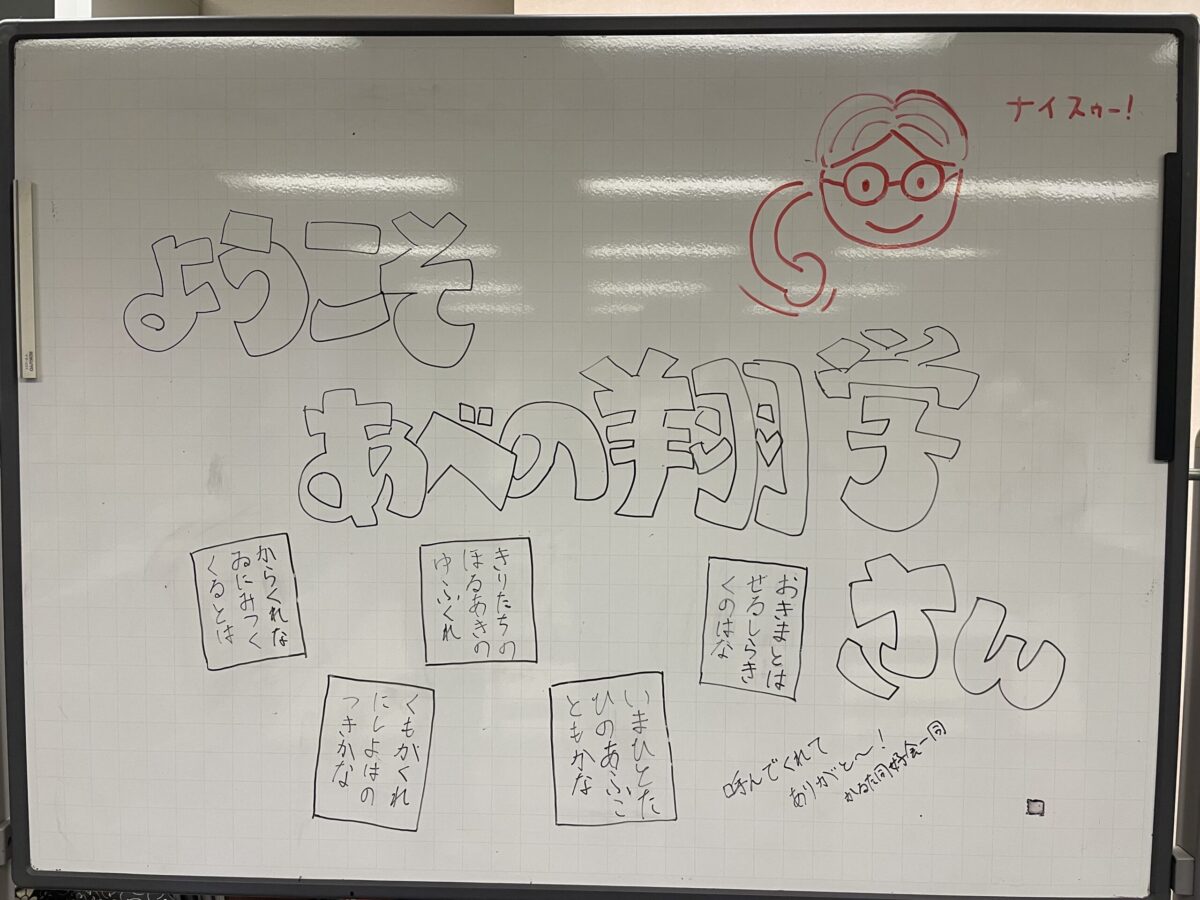 ナイスゥー!
ようこそ
あべの翔学
さん
からくれな
ゐにみつく
くるとは
きりたちの
ほるあきの
ゆふくれ
おきまとは
せるしらき
くのはな
くもがくれ
にしよはの
つきかな
いまひとた
ひのあふこ
ともかな
呼んでくれて
ありがと〜!
かるた同好会一同